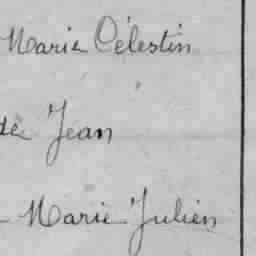 Marie Célestin
dè Jean
Marie Julien